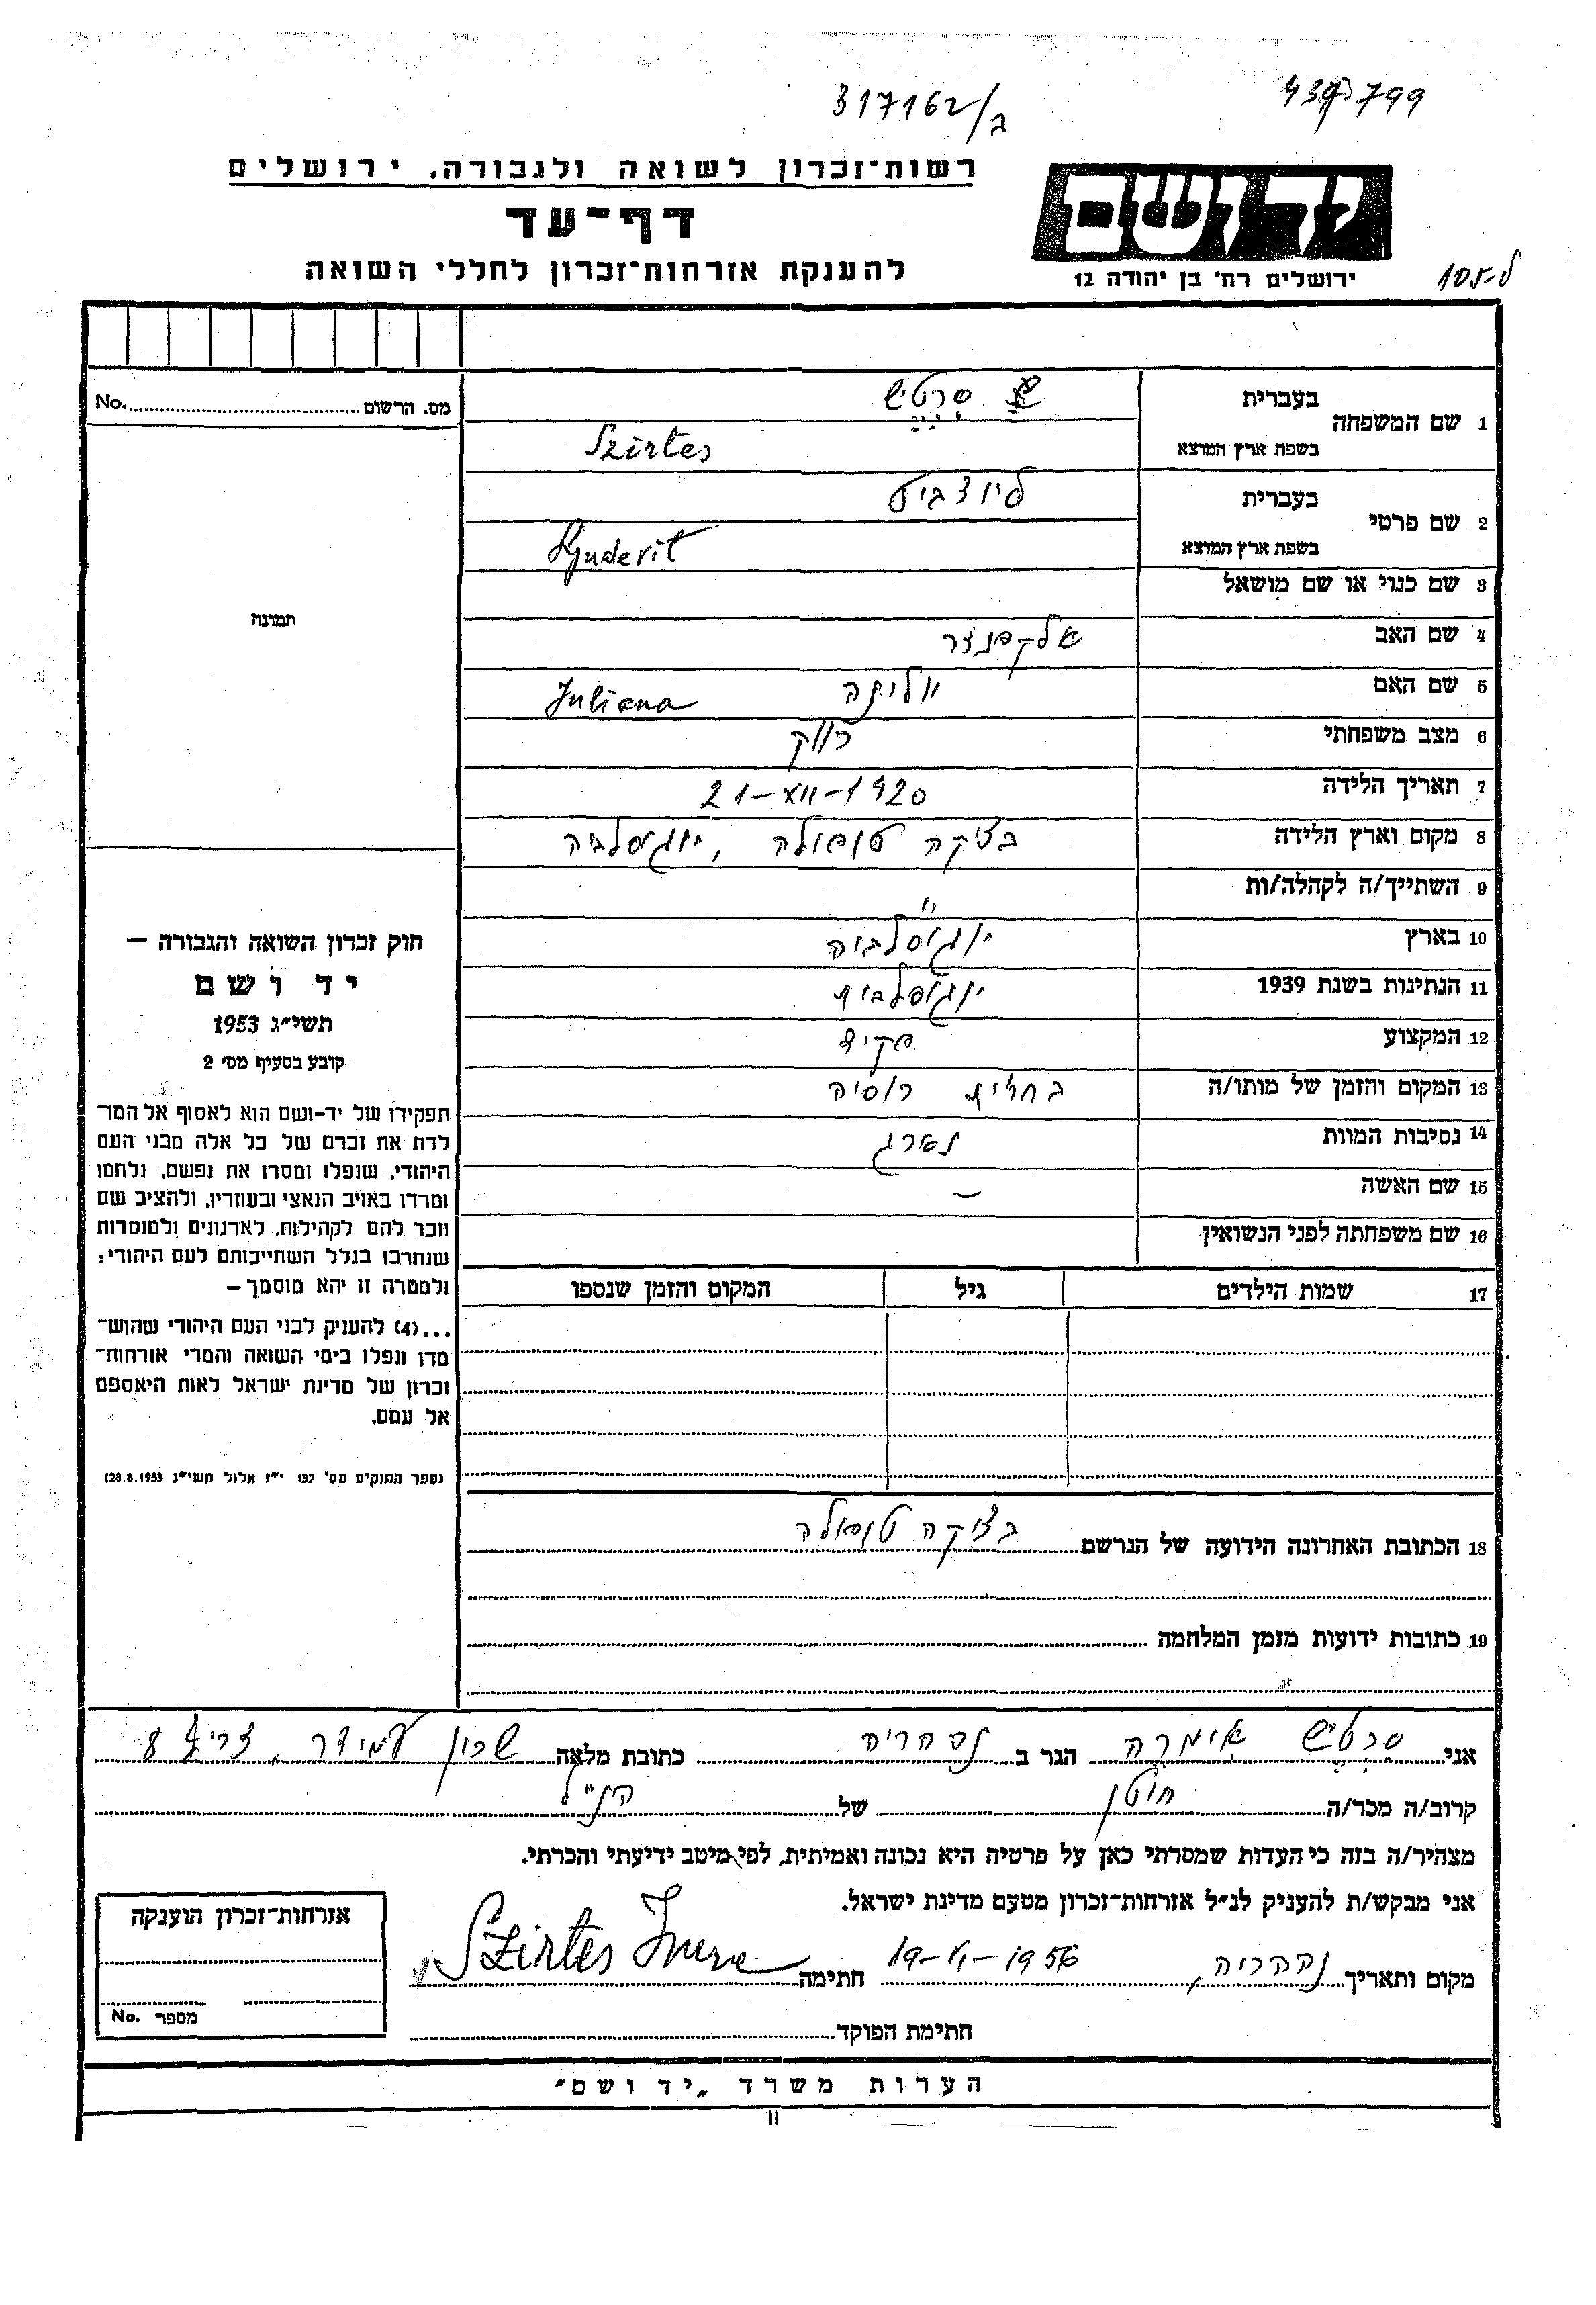 317162/ב
437799
רשות־זכרון לשואה ולגבורה, ירושלים
דף־עד
להענקת אזרחות־זכרון לחללי השואה
יד ושם
ירושלים רח' בן יהודה 12
מס. הרשום No.
תמונה
1 שם המשפחה בעברית סרטיש
בשפת ארץ המוצא Szirtes
2 שם פרטי בעברית ליודביט
בשפת ארץ המוצא Ljudevit
3 שם כנוי או שם מושאל
4 שם האב אלקסנדר
5 שם האם יולינה Juliana
6 מצב משפחתי רווק
7 תאריך הלידה 21-XII-1920
8 מקום וארץ הלידה בצ'קה טופולה, יוגוסלביה
9 השתייך/ה לקהלה/ות "
10 בארץ יוגוסלביה
11 הנתינות בשנת 1939 יוגוסלבית
12 המקצוע פקיד
13 המקום והזמן של מותו/ה בחזית רוסיה
14 נסיבות המוות נהרג
15 שם האשה –
16 שם משפחתה לפני הנשואין
17 שמות הילדים גיל המקום והזמן שנספו
חוק זכרון השואה והגבורה –
יד ושם
תשי"ג 1953
קובע בסעיף מס' 2
תפקידו של יד-ושם הוא לאסוף אל המו־
לדת את זכרם של כל אלה מבני העם
היהודי, שנפלו ומסרו את נפשם, נלחמו
ומרדו באויב הנאצי ובעוזריו, ולהציב שם
וזכר להם לקהילות, לארגונים ולמוסדות
שנחרבו בגלל השתייכותם לעם היהודי;
ולמטרה זו יהא מוסמך –
...(4) להעניק לבני העם היהודי שהוש־
מדו ונפלו בימי השואה והמרי אזרחות־
זכרון של מדינת ישראל לאות היאספם
אל עמם.
(ספר החוקים מס' 132 י"ז אלול תשי"ג 28.8.1953)
18 הכתובת האחרונה הידועה של הנרשם בצ'קה טופולה
19 כתובות ידועות מזמן המלחמה
אני סרטיש אימרה הגר ב נהריה כתובת מלאה שכון עמידר, צריף 8
קרוב/ה מכר/ה של הנ"ל
מצהיר/ה בזה כי העדות שמסרתי כאן על פרטיה היא נכונה ואמיתית, לפי מיטב ידיעתי והכרתי.
אני מבקש/ת להעניק לנ"ל אזרחות־זכרון מטעם מדינת ישראל.
מקום ותאריך נהריה, 1956 חתימה Szirtes Imre
חתימת הפוקד
אזרחות־זכרון הוענקה
מספר No.
הערות משרד „יד ושם"